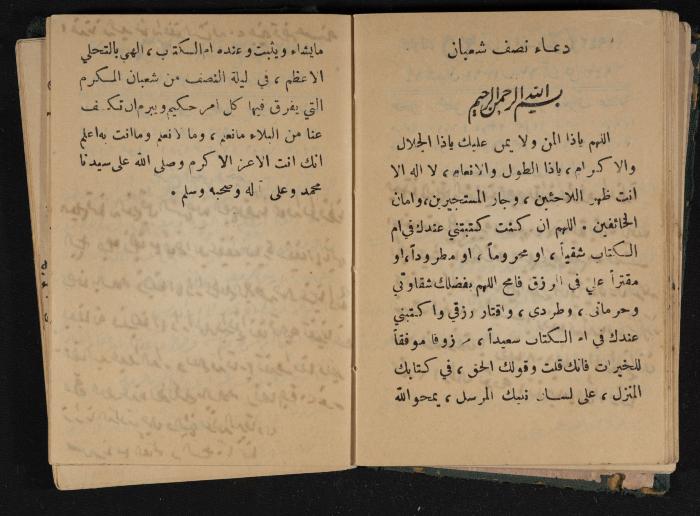 دعاء نصف شعبان
بسم الله الرحمن الرحيم
اللهم ياذا المن ولا يمن عليك ياذا الجلال
والاكرام ، ياذا الطول والانعام ، لا اله الا
انت ظهير اللاجئين ، وجار المستجيرين ، وامان
الخائفين . اللهم ان كنت كتبتني عندك في ام
الكتاب شقياً ، او محروماً ، او مطروداً ، او
مقتراً علي في الرزق فامح اللهم بفضلك شقاوتي
وحرماني ، وطردي ، واقتار رزقي واكتبني
عندك في ام الكتاب سعيداً ، مرزوقا موفقاً
للخيرات فانك قلت وقولك الحق ، في كتابك
المنزل ، على لسان نبيك المرسل ، يمحو الله
مايشاء ويثبت وعنده ام الكتاب ، الهي بالتجلي
الاعظم ، في ليلة النصف من شعبان المكرم
التي يفرق فيها كل امر حكيم ويبرم ان تكشف
عنا من البلاء مانعلم ، وما لانعلم وماانت به اعلم
انك انت الاعز الاكرم وصلى الله على سيدنا
محمد وعلى آله وصحبه وسلم .